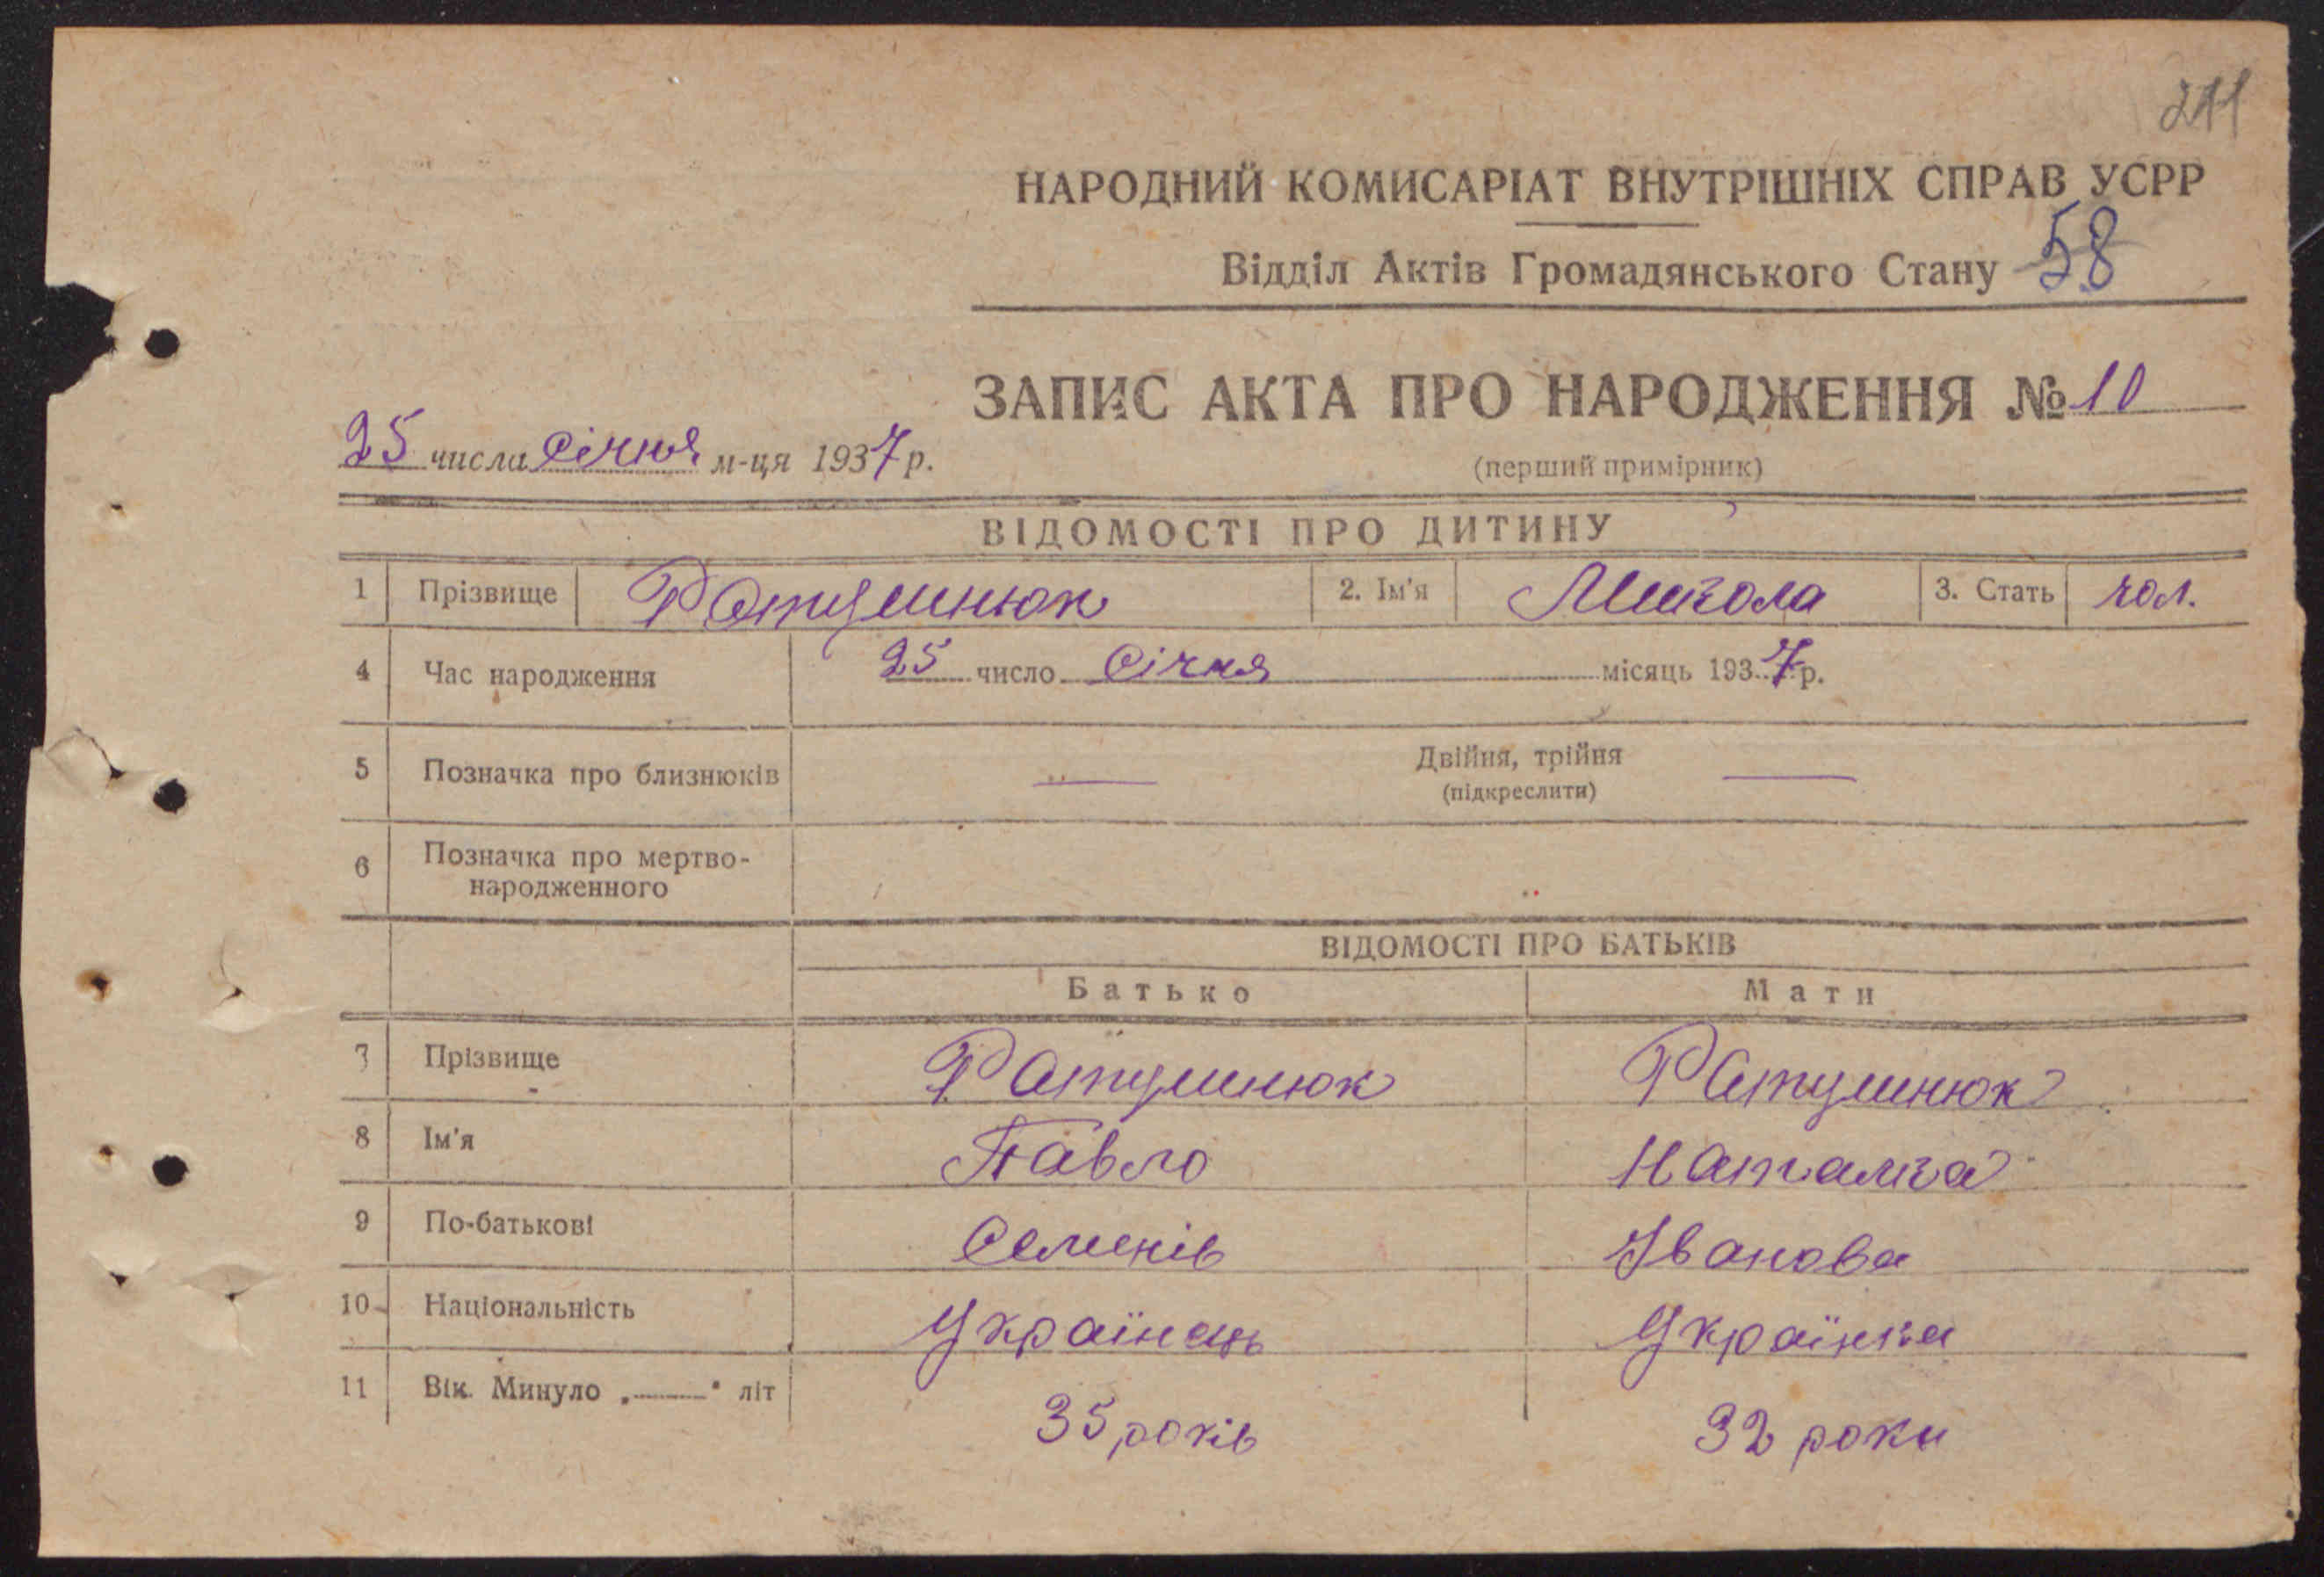 211
НАРОДНИЙ КОМИСАРІАТ ВНУТРІШНІХ СПРАВ УСРР
Відділ Актів Громадянського Стану 58
ЗАПИС АКТА ПРО НАРОДЖЕННЯ № 10
25 числа Січня м-ця 1937 р.
(перший примірник)
ВІДОМОСТІ ПРО ДИТИНУ
1 Прізвище Ратушнюк 2. Ім'я Микола 3. Стать чол.
4 Час народження 25 число Січня місяць 1937 р.
5 Позначка про близнюків — Двійня, трійня —
(підкреслити)
6 Позначка про мертво-
народженного
ВІДОМОСТІ ПРО БАТЬКІВ
Батько Мати
7 Прізвище Ратушнюк Ратушнюк
8 Ім'я Павло Наталка
9 По-батькові Семенів Іванова
10 Національність Українець Українка
11 Вік. Минуло „——" літ 35 років 32 роки